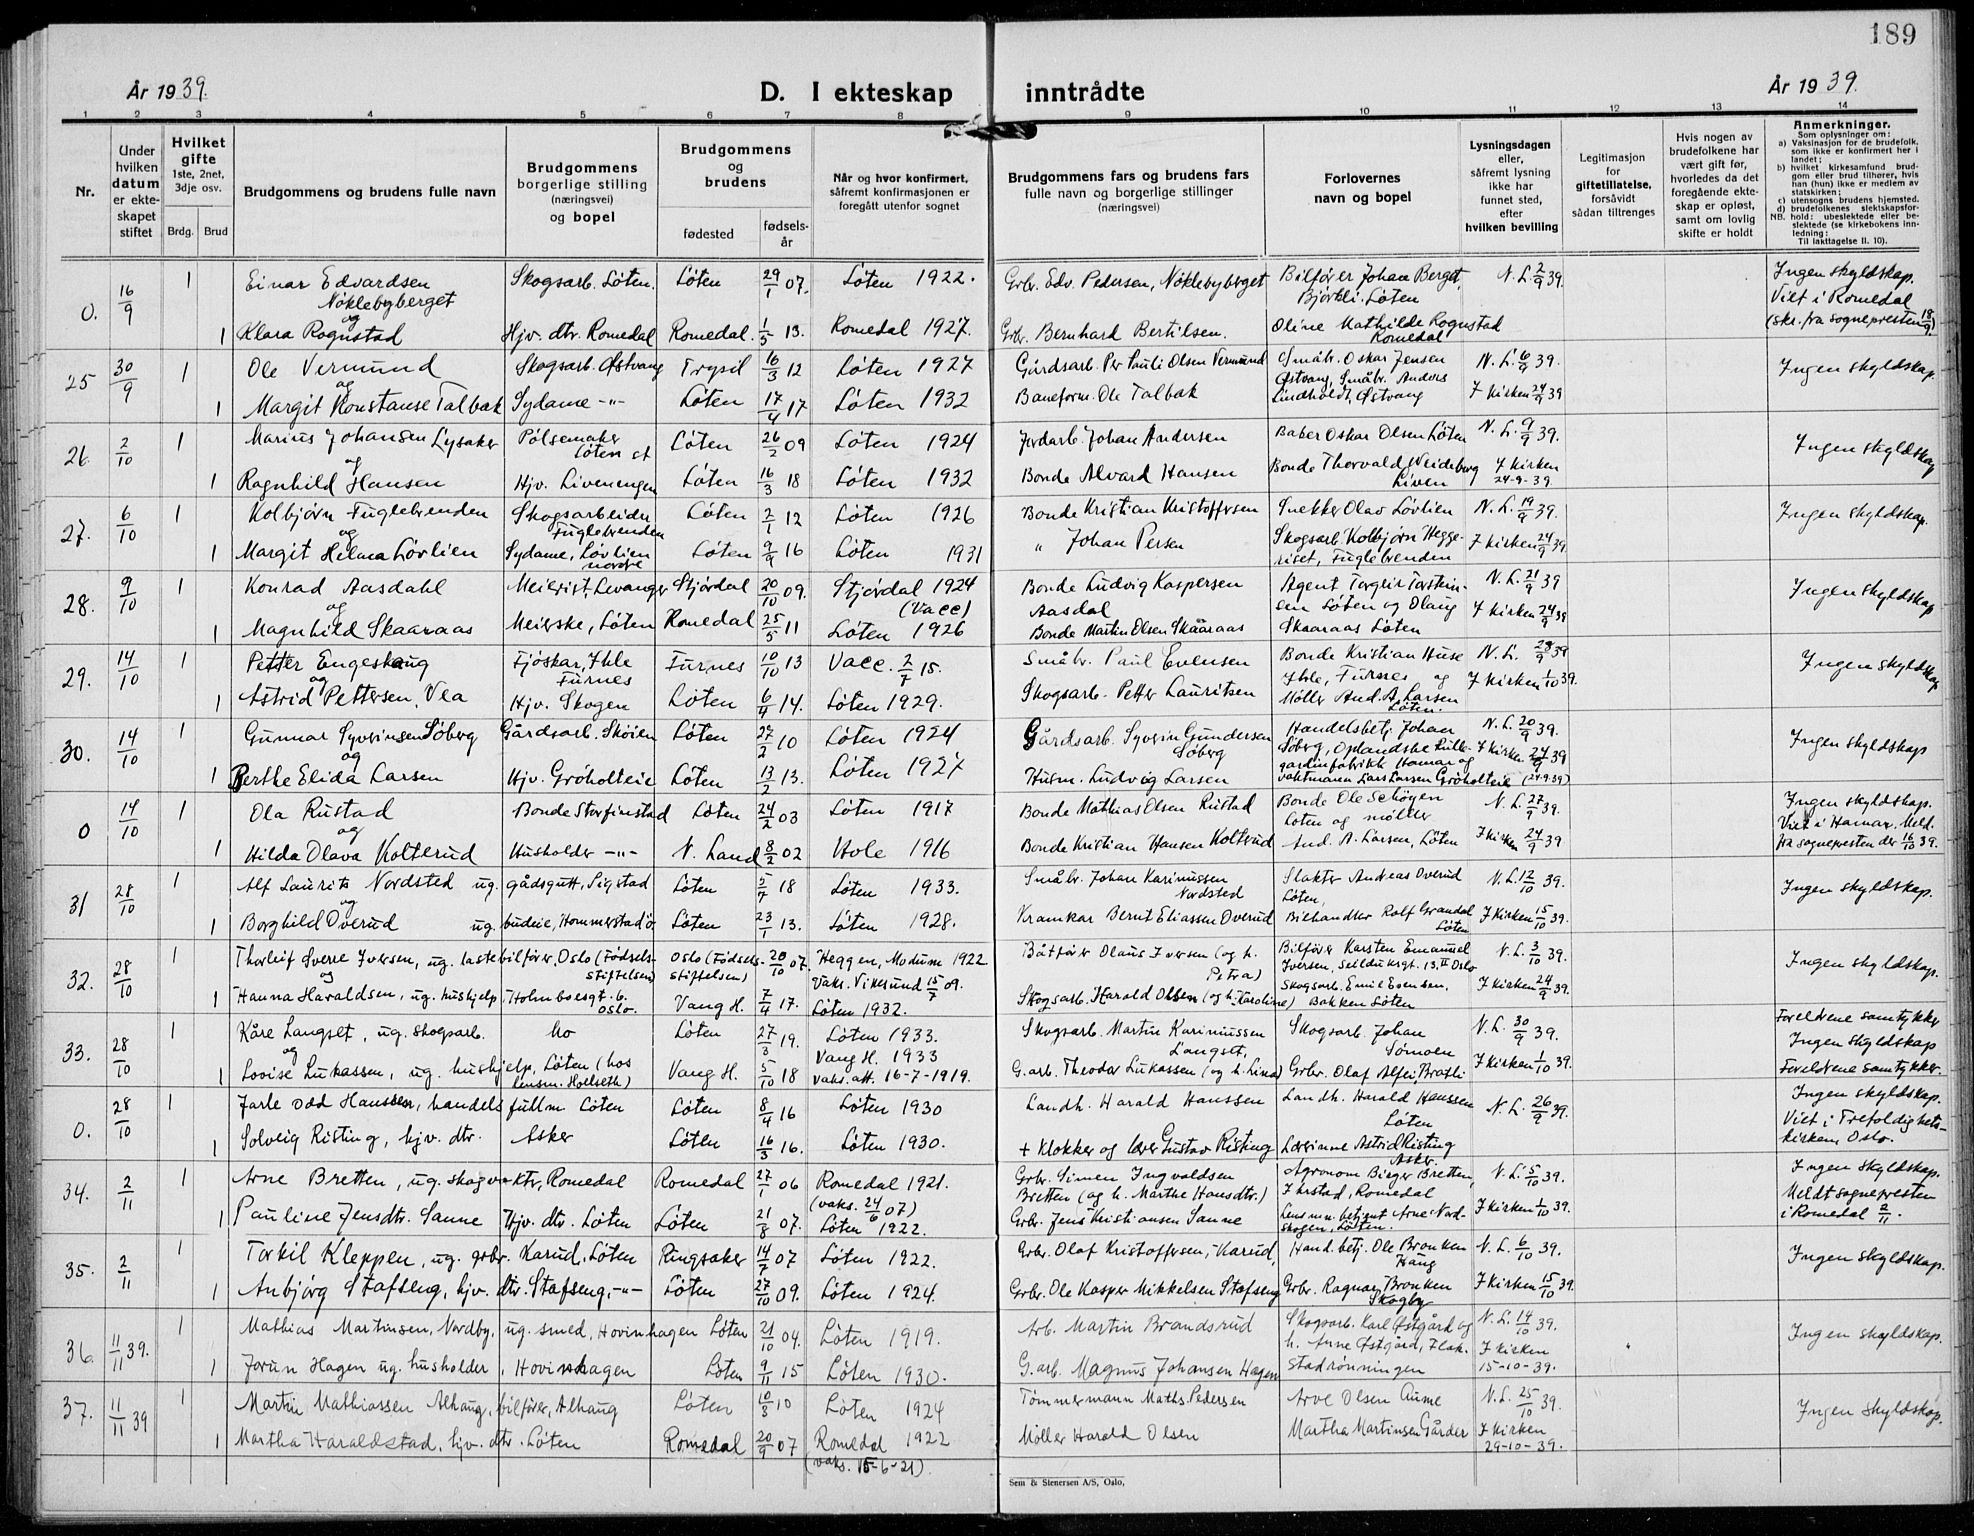 189
År 1939.
D. I ekteskap inntrådte
År 1939.
1 2 3 4 5 6 7 8 9 10 11 12 13 14
Nr.
Under hvilken datum er ekteskapet stiftet
Hvilket gifte 1ste, 2net, 3dje osv.
Brdg. Brud
Brudgommens og brudens fulle navn
Brudgommens borgerlige stilling (næringsvei) og bopel
Brudgommens og brudens
fødested
fødselsår
Når og hvor konfirmert, såfremt konfirmasjonen er foregått utenfor sognet
Brudgommens fars og brudens fars fulle navn og borgerlige stillinger (næringsvei)
Forlovernes navn og bopel
Lysningsdagen eller, såfremt lysning ikke har funnet sted, efter hvilken bevilling
Legitimasjon for giftetillatelse, forsåvidt sådan tiltrenges
Hvis nogen av brudefolkene har vært gift før, hvorledes da det foregående ekteskap er opløst, samt om lovlig skifte er holdt
Anmerkninger.
Som oplysninger om:
a) Vaksinasjon for de brudefolk, som ikke er konfirmert her i landet;
b) hvilket kirkesamfund brudgom eller brud tilhører, hvis han (hun) ikke er medlem av statskirken;
c) utensogns brudens hjemsted.
d) brudefolkenes slektskapsforhold: ubeslektede eller beslektede (se kirkebokens innledning:
NB. Til Iakttagelse II. 10).
0. 16/9 1 Einar Edvardsen Nøklebyberget Skogsarb. Løten. Løten 29/1 07. Løten 1922. Grbr. Edv. Pedersen, Nøklebyberget Bilfører Johan Berget, Bjørkli. Løten N.L. 2/9 39. Ingen skyldskap. Viet i Romedal (skr. fra sognepresten 18/9)
og
1 Klara Rognstad Hjv. dtr. Romedal Romedal. 1/5 13. Romedal 1927. Grb. Bernhard Bertilsen. Oline Mathilde Rognstad Romedal
25 30/9 1 Ole Vermund Skogsarb. Østvang Trysil 16/3 12 Løten 1927 Gårdsarb. Per Pauli Olsen Vermund Småbr. Oskar Jensen Østvang, Småbr. Anders Lindholdt, Østvang N.L. 6/9 39. Ingen skyldskap.
og
1 Margit Konstanse Talbak Sydame -"- Løten 17/4 17 Løten 1932 Baneform. Ole Talbak I kirken 24/9 39
26. 2/10 1 Marius Johansen Lysaker Pølsemaker Løten st Løten 26/2 09 Løten 1924 Jordarb. Johan Andersen Baber Oskar Olsen Løten N.L. 9/9 39. Ingen skyldskap
og
1 Ragnhild Hansen Hjv. Livenengen Løten 16/3 18 Løten 1932 Bonde Alvard Hansen Bonde Thorvald Weideberg Liven I kirken 24-9-39.
27. 6/10 1 Kolbjørn Fuglebrenden Skogsarbeider Fuglebrenden Løten 2/1 12 Løten 1926 Bonde Kristian Kristoffersen Snekker Olav Løvlien N.L. 19/9 39. Ingen skyldskap.
og
1 Margit Helma Løvlien Sydame, Løvlien nordre Løten 9/9 16 Løten 1931 " Johan Persen Skogsarb. Kolbjørn Heggeriset, Fuglebrenden I kirken 24/9 39
28. 9/10 1 Konrad Aasdahl Meierist, Levanger Stjørdal 20/10 09. Stjørdal 1924 (Vacc) Bonde Ludvig Kaspersen Aasdal Agent Torgeir Torsteinsen Løten og Olaug Skaaraas Løten N.L. 21/9 39 Ingen skyldskap
og
1 Magnhild Skaaraas Meierske, Løten Romedal 25/5 11 Løten 1926 Bonde Martin Olsen Skaaraas I kirken 24/9 39
29. 14/10 1 Petter Engeskaug Fjøskar, Ihle Furnes Furnes 10/10 13 Vacc. 2/7 15. Småbr. Paul Evensen Bonde Kristian Huse Ihle, Furnes og Møller And. A. Larsen Løten. N.L. 28/9 39 Ingen skyldskap
og
1 Astrid Pettersen, Vea Hjv. Skogen Løten 6/4 14. Løten 1929. Skogsarb. Petter Lauritsen I kirken 1/10 39.
30. 14/10 1 Gunnar Syversinsen Søberg Gårdsarb. Skøien Løten 27/2 10 Løten 1924 Gårdsarb. Syverin Gundersen Søberg Handelsbetj. Johan Søberg, Oplandske Rullegardinfabrikk Hamar og vaktmann Lars Larsen Grøholteie N.L. 20/9 39. Ingen skyldskap
og
1 Berthe Elida Larsen Hjv. Grøholteie Løten 13/2 13. Løten 1927 Husm. Ludvig Larsen I kirken 24/9 39 (24-9-39)
0 14/10 1 Ola Rustad Bonde Storfinstad Løten 24/2 03 Løten 1917 Bonde Mathias Olsen Rustad Bonde Ole Schøyen Løten og møller And. A. Larsen, Løten N.L. 27/9 39. Ingen skyldskap. Viet i Hamar. Meld. fra sognepresten der 16/10 39.
og
1 Hilda Olava Kolterud Husholder -"- N. Land 8/2 02 Hole 1916 Bonde Kristian Hansen Kolterud I kirken 24/9 39
31 28/10 1 Alf Laurits Nordsted ug. gårdsgutt, Sigstad Løten 5/7 18 Løten 1933. Småbr. Johan Karinussen Nordsted Slakter Andreas Overud Løten, N.L. 12/10 39. Ingen skyldskap.
og
1 Borghild Overud ug. budeie, Hommerstad ø. Løten 23/1 13. Løten 1928. Kramkar Bernt Eliassen Overud Bilhandler Rolf Grandal Løten I kirken 15/10 39.
32. 28/10 1 Thorleif Sverre Iversen, ug. lastebilfører, Oslo (Fødselsstiftelsen) Oslo (Fødselsstiftelsen) 20/10 07. Heggen, Modum 1922. Vaks. Vikesund 15/7 09. Båtfører Olaus Iversen (og h. Petra) Bilfører Karsten Emanuel Iversen, Seilduksgt. 13. II Oslo N.L. 3/10 39. Ingen skyldskap.
og
1 Hanna Haraldsen, ug. hushjelp, Holmboesgt. 6. Oslo. Vang H. 7/4 17. Løten 1932. Skogsarb. Harald Olsen (og h. Karoline) Skogsarb. Emil Evensen, Bakken Løten I kirken 24/9 39.
33. 28/10 1 Kåre Langset, ug. skogsarb. ho Løten 27/3 19. Løten 1933. Skogsarb. Martin Karinussen Langset, Skogsarb. Johan Sømoen N.L. 30/9 39. Foreldrene samtykker Ingen skyldskap
og
1 Lovise Lukassen, ug. hushjelp, Løten (hos lensm. Hoelseth) Vang H. 5/10 18 Vang H. 1933 Vaks. att. 16-7-1919. G.arb. Theodor Lukassen (og h. Lina) Grbr. Olaf Alfei, Bratli I kirken 1/10 39. Foreldrene samtykker.
0. 28/10 1 Jarle Odd Hanssen, handelsfullm. Løten Løten 8/4 16 Løten 1930 Landh. Harald Hanssen Landh. Harald Hanssen Løten N.L. 26/9 39. Ingen skyldskap. Viet i Trefoldighetskirken, Oslo.
1 Solveig Risting, hjv. dtr. Asker Løten 16/3 16. Løten 1930. + Klokker og lærer Gustav Risting Lærerinne Astrid Risting Asker.
34. 2/11 1 Arne Bretten, ug. skogvokter, Romedal Romedal 27/1 06 Romedal 1921. (vaks. 24/6 07) Grbr. Simen Ingvaldsen Bretten (og h. Marthe Hansdtr.) Agronom Birger Bretten, Ihrstad, Romedal N.L. 5/10 39. Ingen skyldskap. Meldt sognepresten i Romedal 2/11.
1 Pauline Jensdtr. Sanne Hjv. dtr. Løten Løten 21/8 07. Løten 1922. Grbr. Jens Kristiansen Sanne Lensm. betjent Arne Nordskogen, Løten. I kirken 1/10 39.
35. 2/11 1 Torkil Kleppen, ug. grbr. Karud, Løten Ringsaker 14/7 07 Løten 1922. Grbr. Olaf Kristoffersen, Karud, Hand. betj. Ole Bronken Vang N.L. 6/10 39. Ingen skyldskap.
1 Anbjørg Stafseng, hjv. dtr. Stafseng, -"- Løten 27/10 09. Løten 1924. Grbr. Ole Kasper Mikkelsen Stafseng Grbr. Ragnar Bronken Skogby I kirken 15/10 39.
36. 11/11 39. 1 Mathias Martinsen, Nordby, ug. smed, Hovinhagen Løten 21/10 04. Løten 1919. Arb. Martin Brandsrud Skogsarb. Karl Østgård og h. Anne Østgård, Ilakstadrønningen N.L. 14/10 39. Ingen skyldskap.
1 Jorun Hagen ug. husholder, Hovinhagen Løten 9/11 15 Løten 1930. G.arb. Magnus Johansen Hagen I kirken 15-10-39.
37. 11/11 39 1 Martin Mathiassen Alhaug, bilfører, Alhaug Løten 10/3 10 Løten 1924 Tømmermann Maths. Pedersen Arve Olsen Aume N.L. 25/10 39. Ingen skyldskap.
1 Martha Haraldstad, hjv. dtr. Løten Romedal 20/9 07 Romedal 1922 (vaks. 15-6-21). Møller Harald Olsen Martha Martinsen Gårder I kirken 29-10-39.
Sem & Stenersen A/S, Oslo.